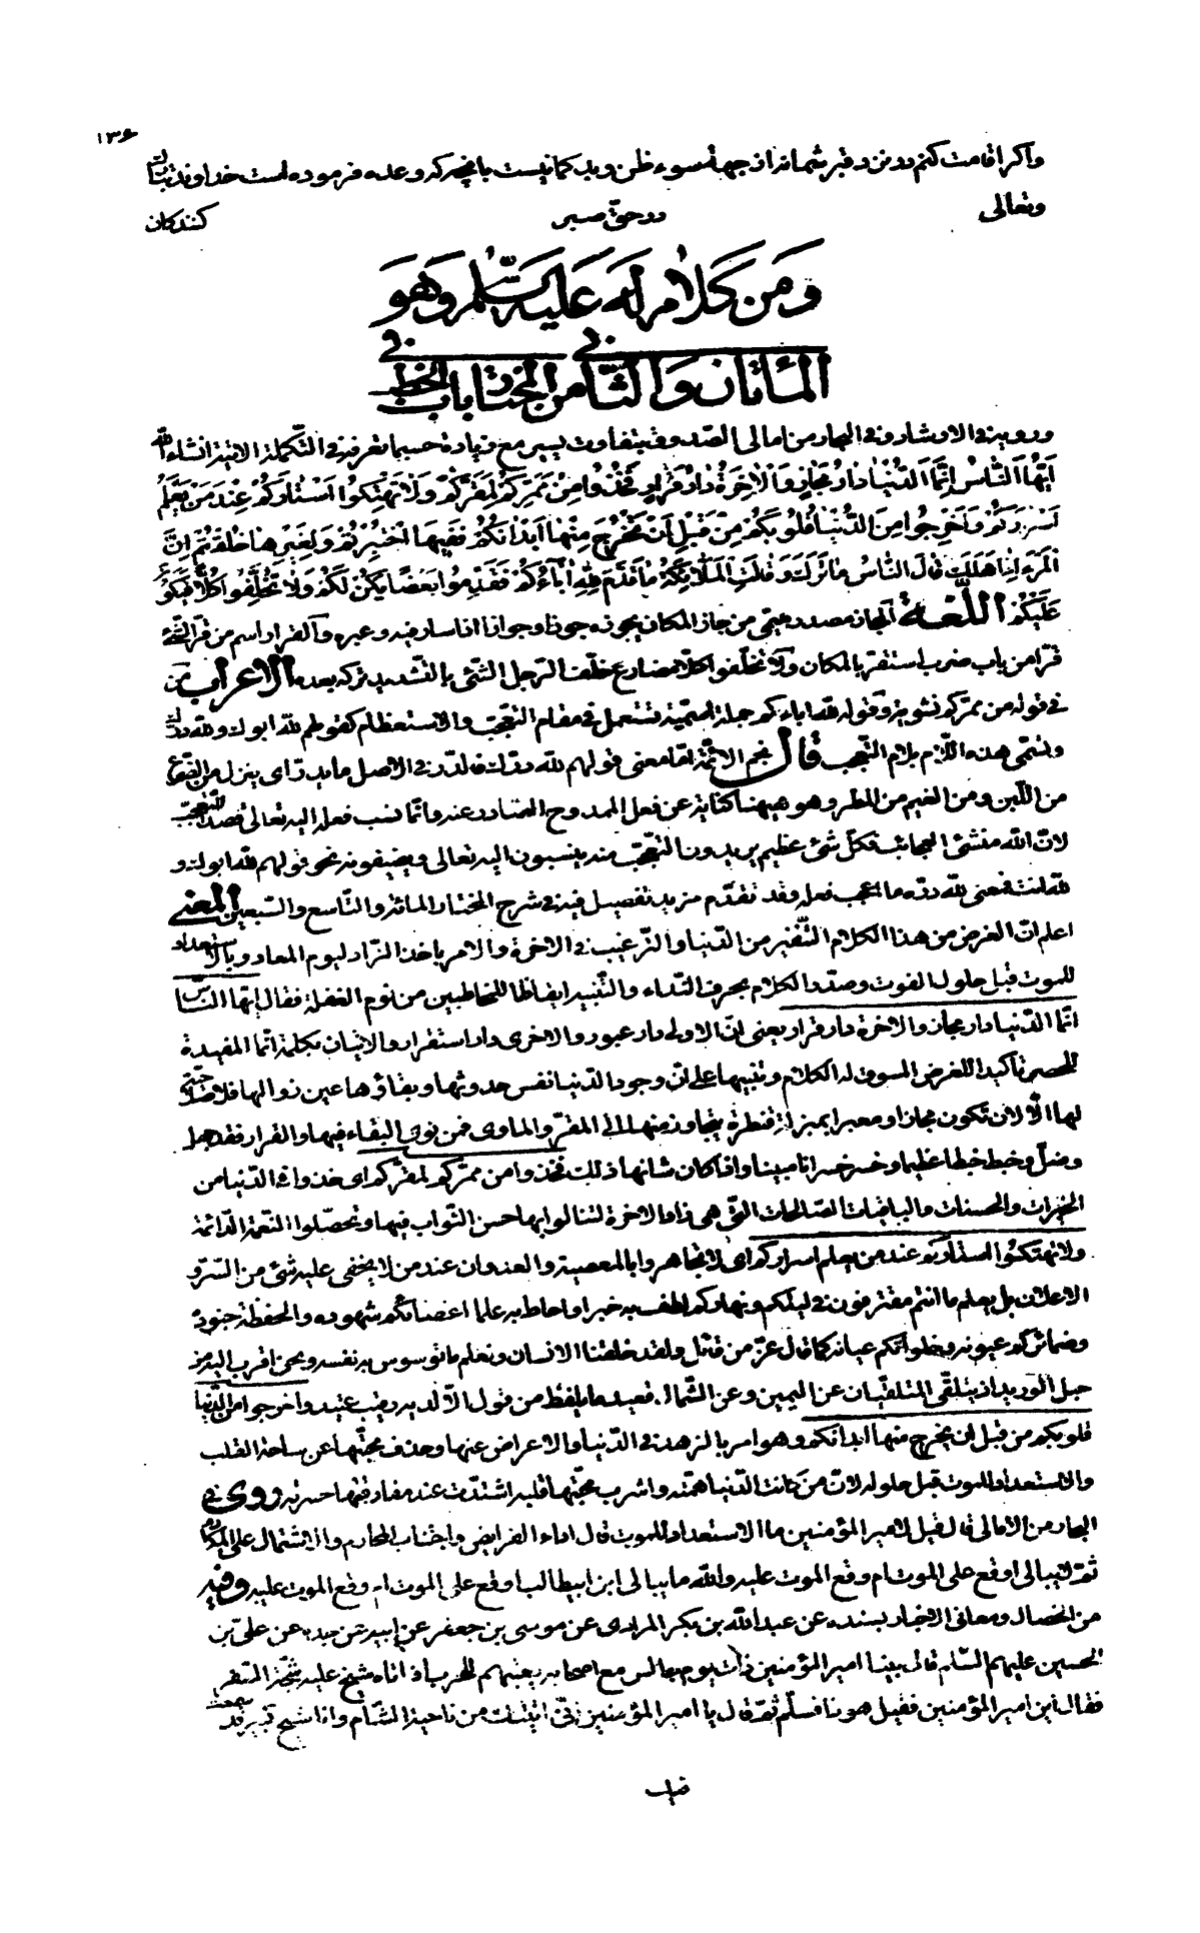 ۱۳۶
واکر اقامت کنم در نزد قبر شما نه از جههٔ سوء ظن و بد کمانیست بانچه که وعده فرموده است خداوند تبارك
وتعالی در حقّ صبر کنندکان
ومن كلام له عليه السّلم وهو
المأتان والثّامن من المختار فی باب الخطب
ورويته فی الارشاد وفی البحار من امالی الصّدوق بتفاوت يسير مع زيادة حسبما تعرفه فی التّكملة الاتية انشاء الله
اَيُّهَا النَّاسُ اِنَّمَا الدُّنْيَا دَارُ مَجَازٍ وَالْاٰخِرَةُ دَارُ قَرَارٍ فَخُذُوا مِنْ مَمَرِّكُمْ لِمَقَرِّكُمْ وَلَا تَهْتِكُوا اَسْتَارَكُمْ عِنْدَ مَنْ يَعْلَمُ
اَسْرَارَكُمْ وَاَخْرِجُوا مِنَ الدُّنْيَا قُلُوبَكُمْ مِنْ قَبْلِ اَنْ تَخْرُجَ مِنْهَا اَبْدَانُكُمْ فَفِيهَا اخْتُبِرْتُمْ وَلِغَيْرِهَا خُلِقْتُمْ اِنَّ
الْمَرْءَ اِذَا هَلَكَ قَالَ النَّاسُ مَا تَرَكَ وَقَالَتِ الْمَلَائِكَةُ مَا قَدَّمَ لِلّٰهِ اٰبَاؤُكُمْ فَقَدِّمُوا بَعْضًا يَكُنْ لَكُمْ وَلَا تُخَلِّفُوا كُلًّا فَيَكُونَ
عَلَيْكُمْ اللّغة المجاز مصدر ميمی من جاز المكان يجوزه جوزا وجوازا اذا سار فيه وعبره والقرار اسم من قرّ الشّئ
قرّا من باب ضرب استقرّ بالمكان ولا تخلّفوا كلّا مضارع خلّف الرّجل الشّئ بالتّشديد تركه بعده الاعراب من
فی قوله من ممرّكم نشوية وقوله لله اباءكم جملة اسمّية تستعمل فی مقام التعجّب والاستعظام كقولهم لله ابوك ولله درّك
وتسمّی هذه اللّام بلام التّعجّب قال نجم الائمّة امّا معنی قولهم لله درّك فالدّرّ فی الاصل ما يدرّ ای ينزل من الضرع
من اللّبن ومن الغيم من المطر وهو هيهنا كناية عن فعل الممدوح الصّادر عنه وانّما نسب فعله اليه تعالی قصدا للتعجّب
لانّ الله منشئ العجائب فكلّ شئ عظيم يريدون التعجّب منه ينسبون اليه تعالی ويضيفونه نحو قولهم لله ابوك و
لله انت فمعنی لله درّه ما اعجب فعله وقد تقدّم مزيد تفصيل فيه فی شرح المختار المائة والتّاسع والسّبعين المعنی
اعلم انّ الغرض من هذا الكلام التّنفير من الدّنيا والتّرغيب فی الاخرة والامر باخذ الزّاد ليوم المعاد وبالاستعداد
للموت قبل حلول الفوت وصدّر الكلام بحرف النّداء والتّنبيه ايقاظا للمخاطبين من نوم الغفلة فقال ايّها النّاس
انّما الدّنيا دار مجاز والاخرة دار قرار يعنی انّ الاولی دار عبور والاخری دار استقرار والاتيان بكلمة انّما المفيدة
للحصر تأكيدا للغرض المسوق له الكلام وتنبيها علی انّ وجود الدّنيا نفس حدوثها وبقاؤها عين زوالها فلا صلاحيّة
لها الّا لان تكون مجازا ومعبرا بمنزلة قنطرة يتجاوز منها الی المقرّ والماوی فمن نوی البقاء فيها والقرار فقد جهل
وضلّ وخبط خبطا عظيما وخسر خسرانا مبينا واذا كان شانها ذلك فخذوا من ممرّكم لمقرّكم ای خذوا فی الدّنيا من
الخيرات والحسنات والباقيات الصّالحات الّتی هی زاد الاخرة لتنالوا بها حسن الثّواب فيها وتحصّلوا النّعمة الدّائمة
ولا تهتكوا استاركم عند من يعلم اسراركم ای لا تجاهروا بالمعصية والعدوان عند من لا يخفی عليه شئ من السّرّ و
الاعلان بل يعلم ما انتم مقترفون فی ليلكم ونهاركم لطف به خبرا واحاط به علما اعضائكم شهوده والحفظة جنوده
وضمائركم عيونه وخلواتكم عيانه كما قال عزّ من قائل ولقد خلقنا الانسان ونعلم ما توسوس به نفسه ونحن اقرب اليه من
حبل الوريد اذ يتلقّی المتلقّيان عن اليمين وعن الشّمال قعيد ما يلفظ من قول الّا لديه رقيب عتيد واخرجوا من الدّنيا
قلوبكم من قبل ان يخرج منها ابدانكم وهو امر بالزهد فی الدّنيا والاعراض عنها وحذف محبّتها عن ساحة القلب
والاستعداد للموت قبل حلوله لانّ من كانت الدّنيا همّته واشرب محبّتها قلبه اشتدّت عند مفارقتها حسرته روی فی
البحار من الامالی قال قيل لامير المؤمنين ما الاستعداد للموت قال اداء الفرايض واجتناب المحارم والاشتمال علی المكارم
ثمّ لا يبالی اوقع علی الموت ام وقع الموت عليه والله ما يبالی ابن ابيطالب اوقع علی الموت ام وقع الموت عليه وفيه
من الخصال ومعانی الاخبار بسنده عن عبدالله بن بكر المرادی عن موسی بن جعفر عن ابيه عن جده عن علیّ بن
الحسين عليهم السّلم قال بينا امير المؤمنين ذات يوم جالس مع اصحابه يعبّيهم للحرب اذ اتاه شيخ عليه شجّة السّفر
فقال اين امير المؤمنين فقيل هو ذا فسلّم ثمّ قال يا امير المؤمنين انّی اتيتك من ناحية الشّام وانا شيخ كبير قد سمعت
فيك